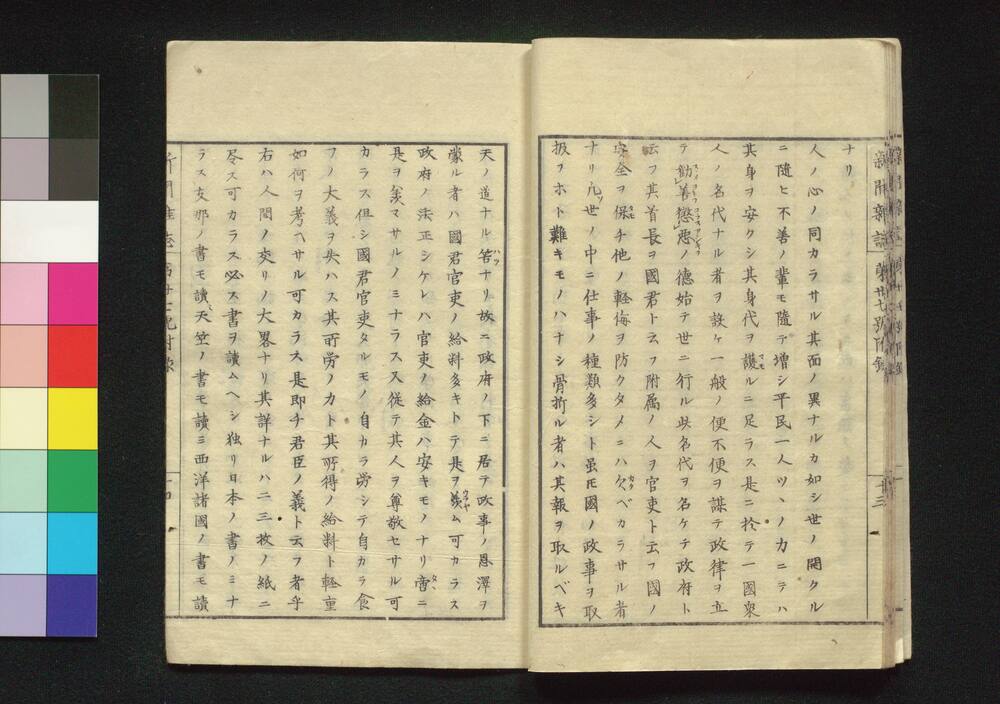 新聞雜誌 第卅七號附錄
十三
ナリ
人ノ心ノ同カラサル其面ノ異ナルカ如シ世ノ開クル
ニ隨ヒ不善ノ輩モ隨テ増シ平民一人ツヽノ力ニテハ
其身ヲ安クシ其身代ヲ護ルニ足ラス是ニ於テ一國衆
人ノ名代ナル者ヲ設ケ一般ノ便不便ヲ謀テ政律ヲ立
テ勧善懲悪ノ德始テ世ニ行ル此名代ヲ名ケテ政府ト
云フ其首長ヲ國君ト云フ附属ノ人ヲ官吏ト云フ國ノ
安全ヲ保チ他ノ軽侮ヲ防クタメニハ欠ベカラサル者
ナリ凡世ノ中ニ仕事ノ種類多シト雖𪜈國ノ政事ヲ取
扱フホト難キモノハナシ骨折ル者ハ其報ヲ取ルベキ
天ノ道ナル筈ナリ故ニ政府ノ下ニ居テ政事ノ恩澤ヲ
蒙ル者ハ國君官吏ノ給料多キトテ是ヲ羨ム可カラス
政府ノ法正シケレハ官吏ノ給金ハ安キモノナリ啻ニ
是ヲ羨マサルノミナラス又従テ其人ヲ尊敬セサル可
カラス但シ國君官吏タルモノ自カラ労シテ自カラ食
フノ大義ヲ失ハス其所労ノカト其所得ノ給料ト軽重
如何ヲ考ヘサル可カラス是即チ君臣ノ義ト云フ者乎
右ハ人間ノ交リノ大畧ナリ其詳ナルハ二三枚ノ紙ニ
尽ス可カラス必ス書ヲ讀ムヘシ独リ日本ノ書ノミナ
ラス支那ノ書モ讀ミ天竺ノ書モ讀ミ西洋諸國ノ書モ讀